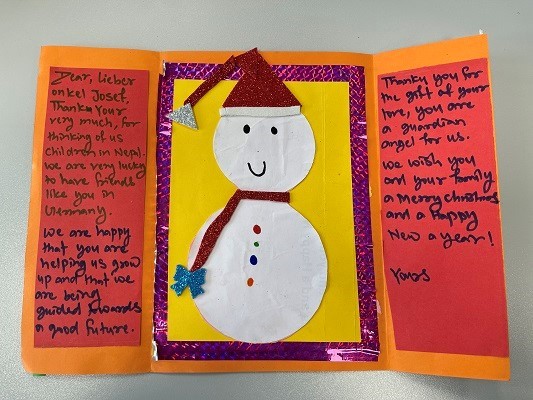 Dear, Lieber
onkel Josef,
Thanks Your
very much, for
thinking of us
children in Nepal.
we are very lucky
to have friends
like you in
Germany.
we are happy
that you are
helping us grow
up and that we
are being
guided towards
a good future.
Thanks you for
the gift of your
love, you are
a guardian
angel for us.
we wish you
and your family
a Merry christmas
and a happy
New a year!
Yours